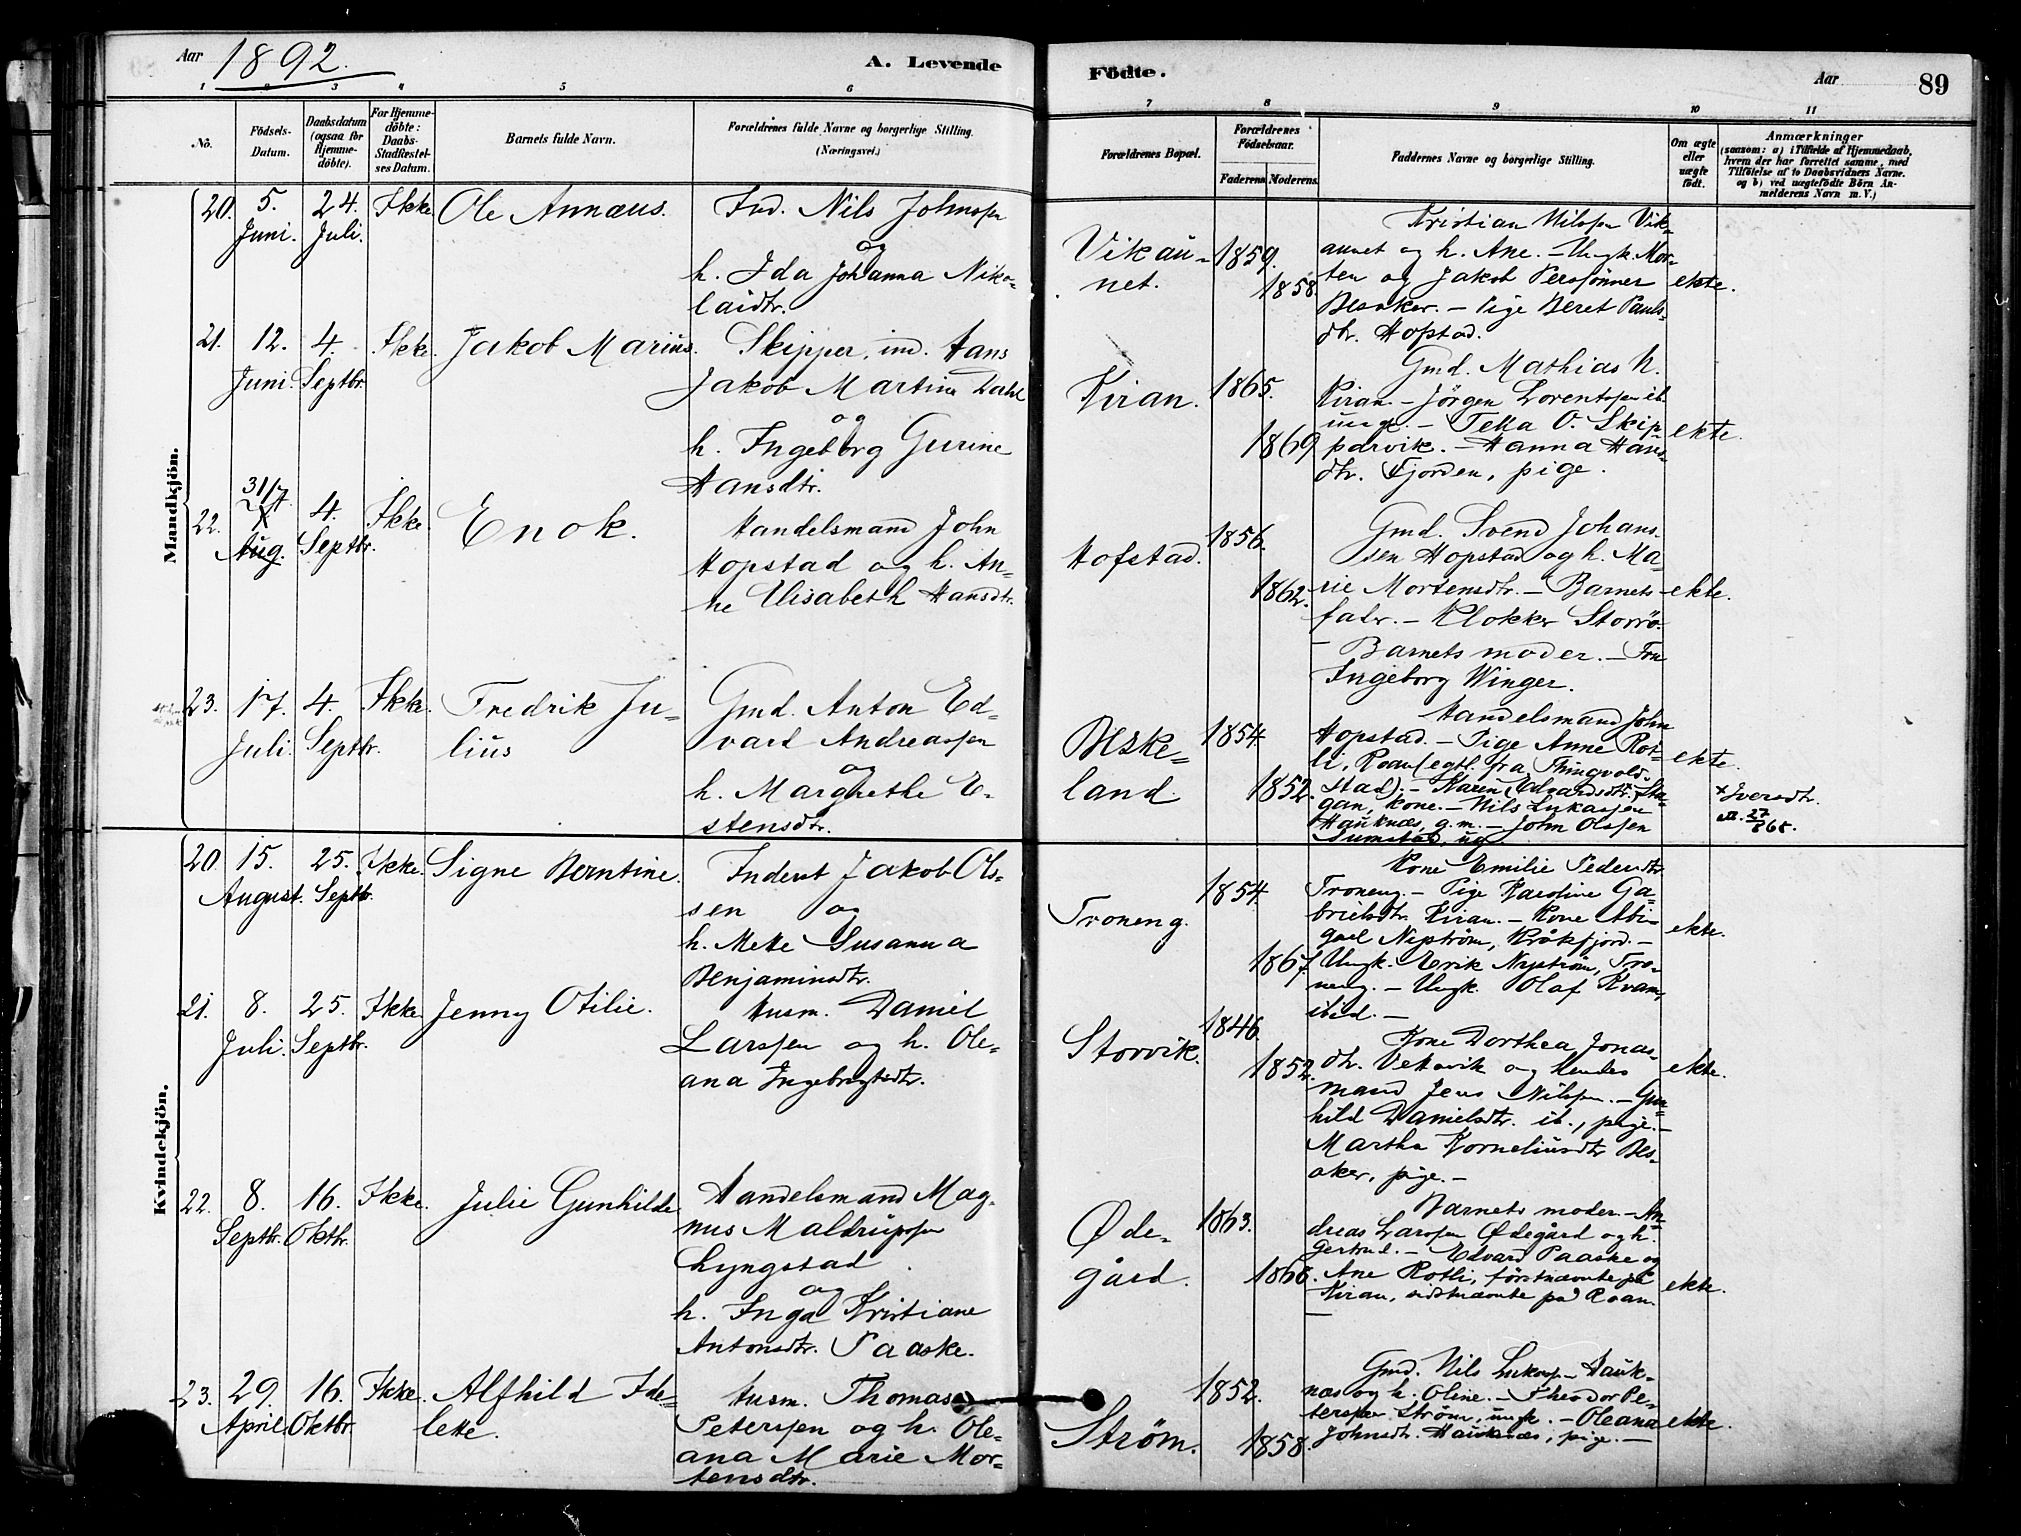 Aar 1892.
A. Levende
Födte.
Aar
89
1 2 3 4 5 6 7 8 9 10 11
No.
Födsels-Datum.
Daabsdatum (ogsaa for Hjemmedöbte).
For Hjemmedöbte: Daabs-Stadfæstelses Datum.
Barnets fulde Navn.
Forældrenes fulde Navne og borgerlige Stilling. (Næringsvei.)
Forældrenes Bopæl.
Forældrenes Födselsaar.
Faderens. Moderens.
Faddernes Navne og borgerlige Stilling.
Om ægte eller uægte födt.
Anmærkninger
(saasom: a) i Tilfælde af Hjemmedaab, hvem der har forrettet samme, med Tilföielse af to Daabsvidners Navne. og b) ved uægtefödte Börn Anmelderens Navn m.V.)
Mandkjön.
20. 5. Juni. 24. Juli. Ikke Ole Annæus.
Ind. Nils Johnsen
og
h. Ida Johanna Niko-
laidtr.
Vikau-
net.
1859.
1858.
Kristian Nilsen Vik-
aunet og h. Ane. - Ungk. Mor-
ten og Jakob Persønner
Besaker. - Pige Beret Pauls-
dtr. Hopstad.
ekte.
21. 12. Juni. 4. Septbr. Ikke. Jakob Marius.
Skipper, ind. Hans
Jakob Martin Dahl
og
h. Ingeborg Gurine
Hansdtr.
Kiran.
1865.
1869
Gmd. Mathias N.
Kiran - Jörgen Lorentsen ib.
ungk. - Tella O. Skip-
parvik. - Hanna Hans-
dtr. Fjorden, pige.
ekte.
22. 31/7 Aug. 4. Septbr. Ikke Enok.
Handelsmand John
Hopstad og h. An-
ne Elisabeth Hansdtr.
Hofstad.
1856.
1862.
Gmd. Svend Johans-
sen Hopstad og h. Ma-
rie Mortensdtr. - Barnets
fader. - Klokker Storrö.
- Barnets moder. - Fru
Ingeborg Winger.
ekte.
23. 17. Juli. 4. Septbr. Ikke. Fredrik Ju-
lius
Gmd. Anton Ed-
vard Andreassen
og
h. Margrethe E-
stensdtr.
Beske-
land.
1854.
1852.
Handelsmand John
Hopstad. - Pige Anne Rot-
li, Roan (egtl. fra Thingvold-
stad). - Karen Edvardsdtr. Sta-
gan, kone. - Nils Lukassen
Hauknæs, g.m. - John Olssen
Sumstad, ug.
ekte.
* Iversdtr.
27
865.
Kvindekjön.
20. 15. August. 25. Septb. Ikke. Signe Berntine.
Inderst Jakob Ols-
sen og
h. Mette Susanna
Benjaminsdtr.
Troneng.
1854.
1867.
Kone Emilie Pedersdtr.
Troneng. - Pige Karoline Ga-
brielsdtr. Kiran. - Kone Abi-
gael Nyström, Kråkfjord. -
Ungk. Erik Nyström, Tro-
neng. - Ungk. Olaf Kvam,
ibid. -
ekte.
21. 8. Juli. 25. Septbr. Ikke. Jenny Otilie.
Husm. Daniel
Larssen og h. Ole-
ana Ingebrigtsdtr.
Storvik.
1846.
1852.
Kone Dorthea Jonas-
dtr. Vekavik og hendes
mand Jens Nilssen. - Gun-
hild Danielsdtr. ib., pige. -
Martha Korneliusdtr. Bes-
aker, pige. -
ekte.
22. 8. Septbr. 16. Oktbr. Ikke. Julie Gunhilde
Handelsmand Mag-
nus Maldrupsen
Lyngstad
og
h. Inga Kristiane
Antonsdtr. Paaske.
Øde-
gård.
1863.
1868.
Barnets moder. - An-
dreas Larssen Ødegård og h.
Gertrud. - Edvard Paaske og
Ane Rotli, førstnævnte på
Kiran, sidstnævnte på Roan.
-
ekte.
23. 29. April. 16. Oktbr. Ikke. Alfhild Ide-
lette.
Husm. Thomas
Peterssen og h. Ole-
ana Marie Mor-
tensdtr.
Strøm.
1852.
1858.
Gmd. Nils Lukass. Hauk-
næs og h. Oline. - Theodor Pe-
terssen Strøm, ungk. - Oleana
Johnsdtr. Hauknæs, pige. -
ekte.